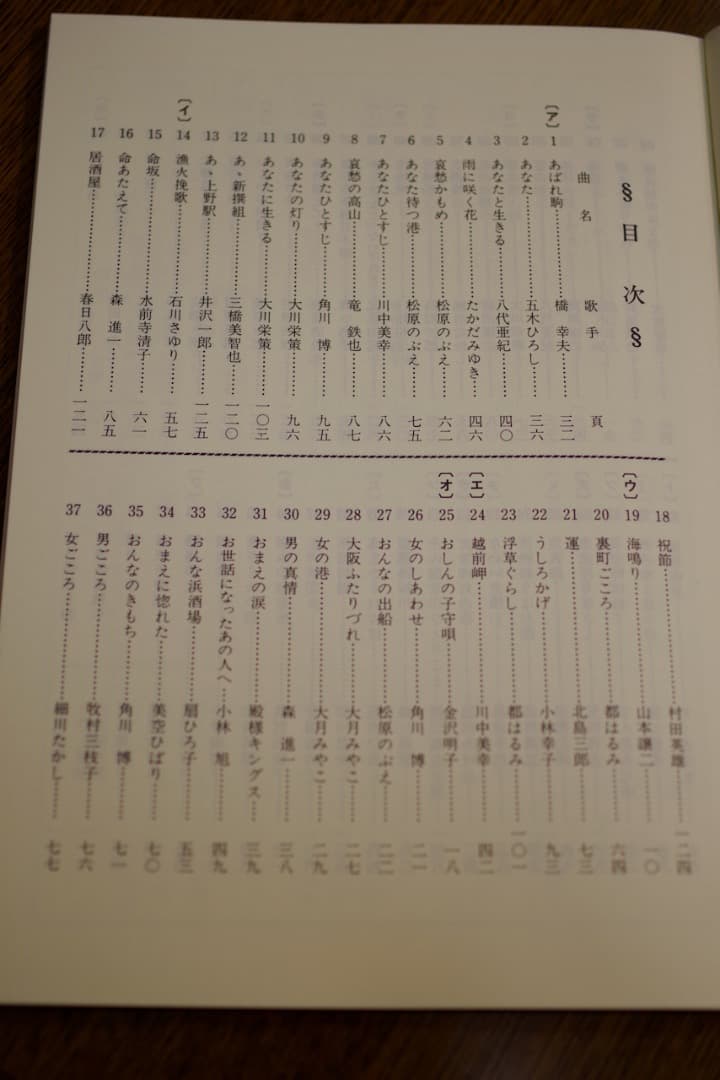 § 目 次 §
曲名 歌手 頁
〔ア〕
1 あばれ駒……橋 幸夫……三二
2 あなた……五木ひろし……三六
3 あなたと生きる……八代亜紀……四〇
4 雨に咲く花……たかだみゆき……四六
5 哀愁かもめ……松原のぶえ……六二
6 あなた待つ港……松原のぶえ……七五
7 あなたひとすじ……川中美幸……八六
8 哀愁の高山……竜 鉄也……八七
9 あなたひとすじ……角川 博……九五
10 あなたの灯り……大川栄策……九六
11 あなたに生きる……大川栄策……一〇三
12 あゝ新撰組……三橋美智也……一二〇
13 あゝ上野駅……井沢一郎……一二五
〔イ〕
14 漁火挽歌……石川さゆり……五七
15 命坂……水前寺清子……六一
16 命あたえて……森 進一……八五
17 居酒屋……春日八郎……一二一
18 祝節……村田英雄……一二四
〔ウ〕
19 海鳴り……山本譲二……一〇
20 裏町ごころ……都はるみ……六四
21 運……北島三郎……七三
22 うしろかげ……小林幸子……九三
23 浮草ぐらし……都はるみ……一〇一
〔エ〕
24 越前岬……川中美幸……四二
〔オ〕
25 おしんの子守唄……金沢明子……一八
26 女のしあわせ……角川 博……二一
27 おんなの出船……松原のぶえ……二二
28 大阪ふたりづれ……大月みやこ……二七
29 女の港……大月みやこ……二九
30 男の真情……森 進一……三八
31 おまえの涙……殿様キングス……三九
32 お世話になったあの人へ……小林 旭……四九
33 おんな浜酒場……扇ひろ子……五三
34 おまえに惚れた……美空ひばり……七〇
35 おんなのきもち……角川 博……七一
36 男ごころ……牧村三枝子……七六
37 女ごころ……細川たかし……七七